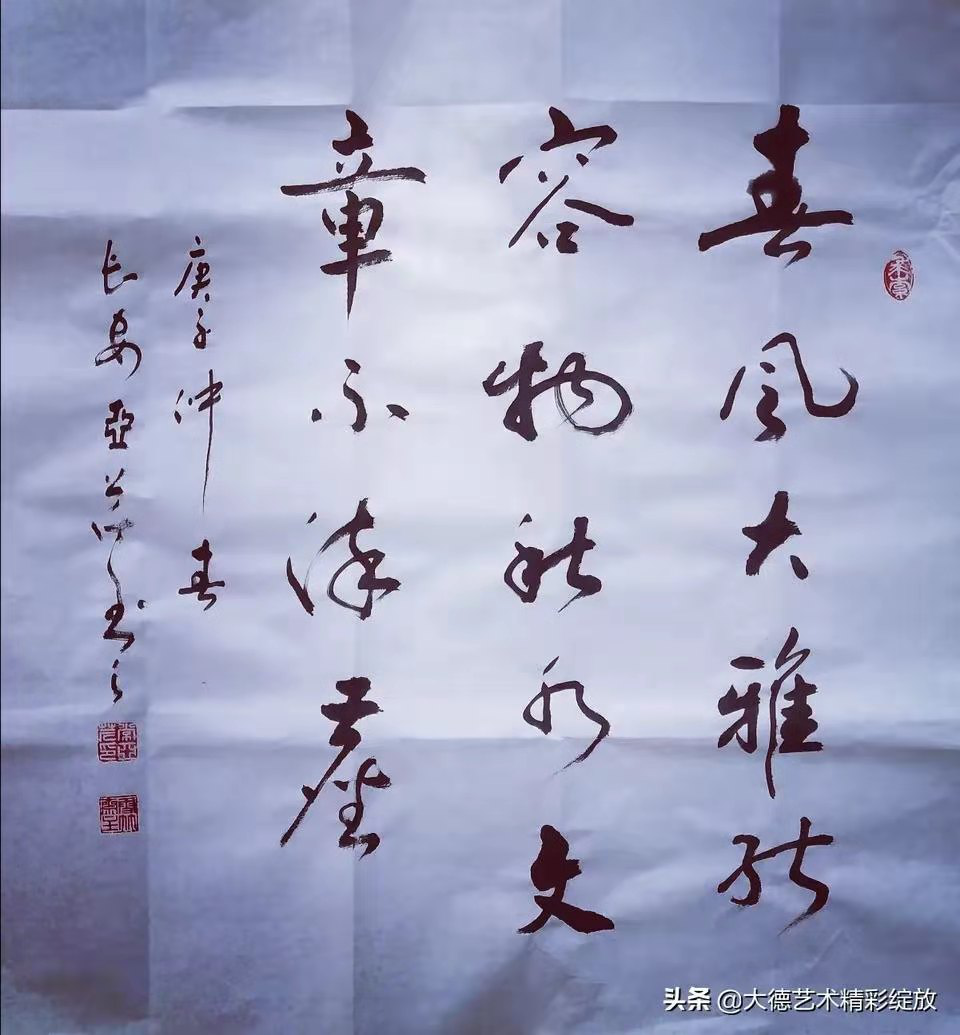 春风大雅能
容物秋水文
章不染尘
庚子仲春
长安亚
书
头条 @大德艺术精彩绽放